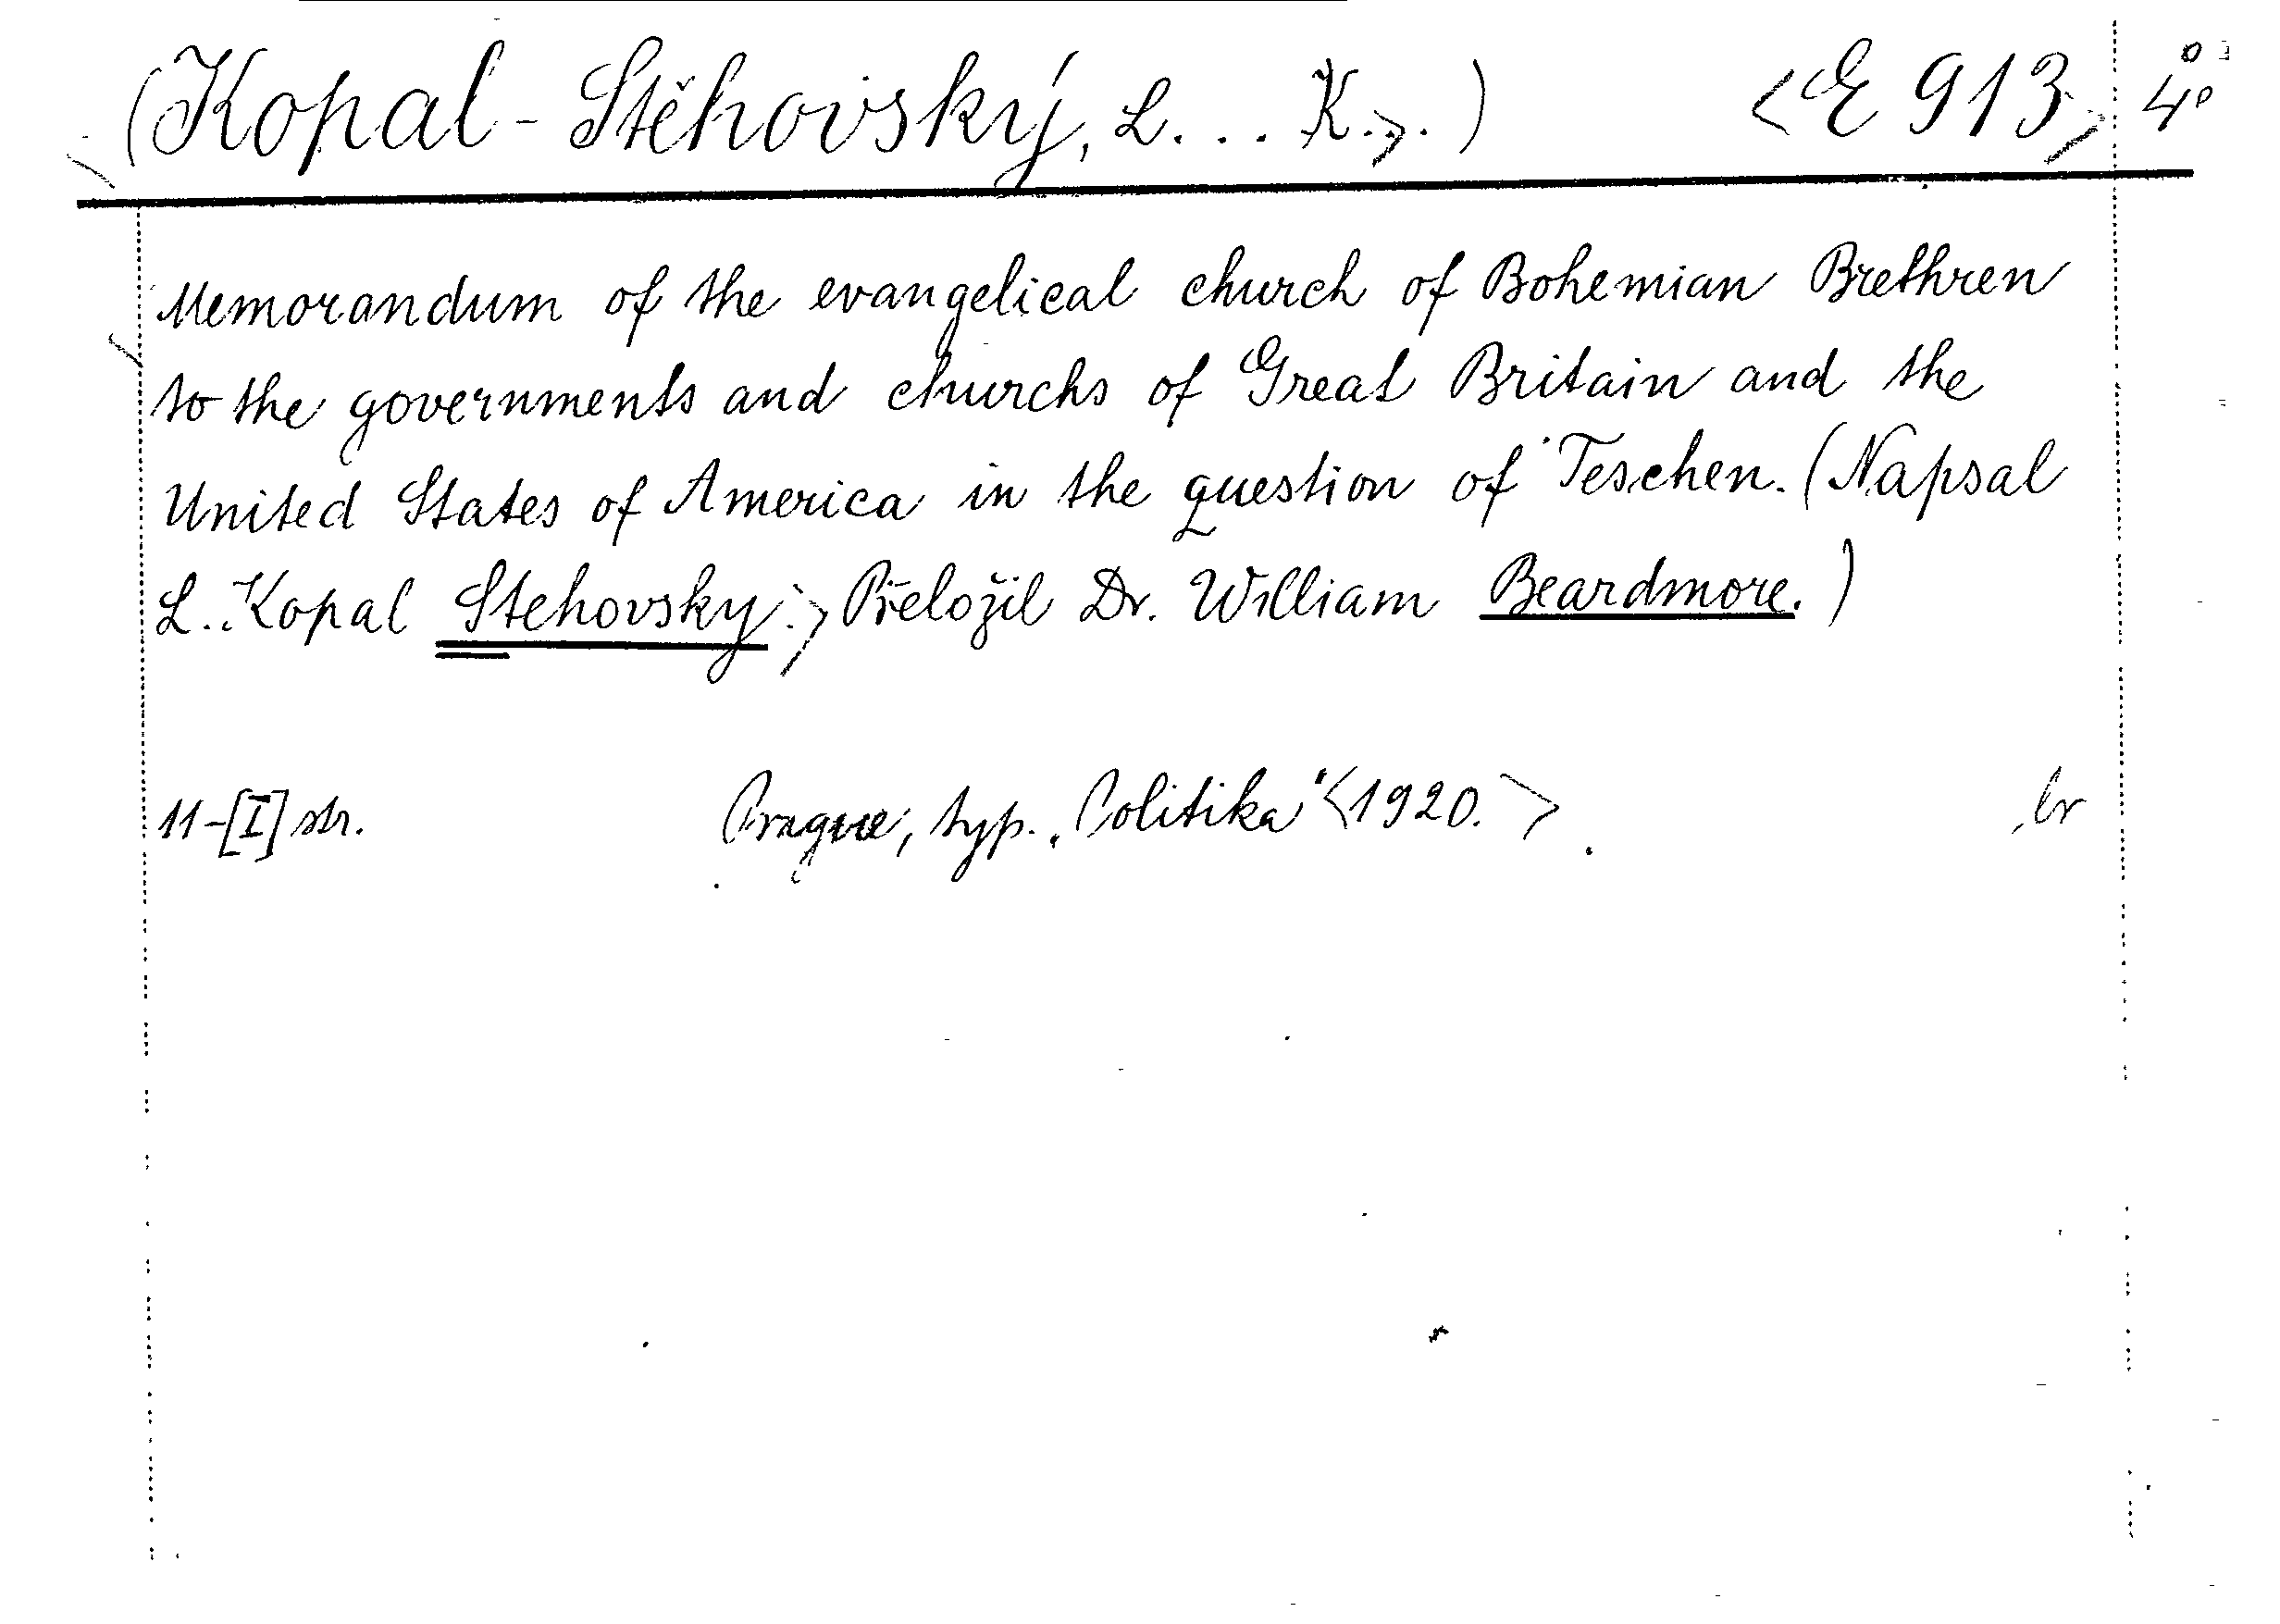 (Kopal-Stěhovský, L... K.>.) <E 913> 4°
Memorandum of the evangelical church of Bohemian Brethren
to the governments and churchs of Great Britain and the
United States of America in the question of Teschen. (Napsal
L. Kopal Stehovsky.> Přeložil Dr. William Beardmore.)
11-[I] str. Prague, typ. „Politika" <1920.> br